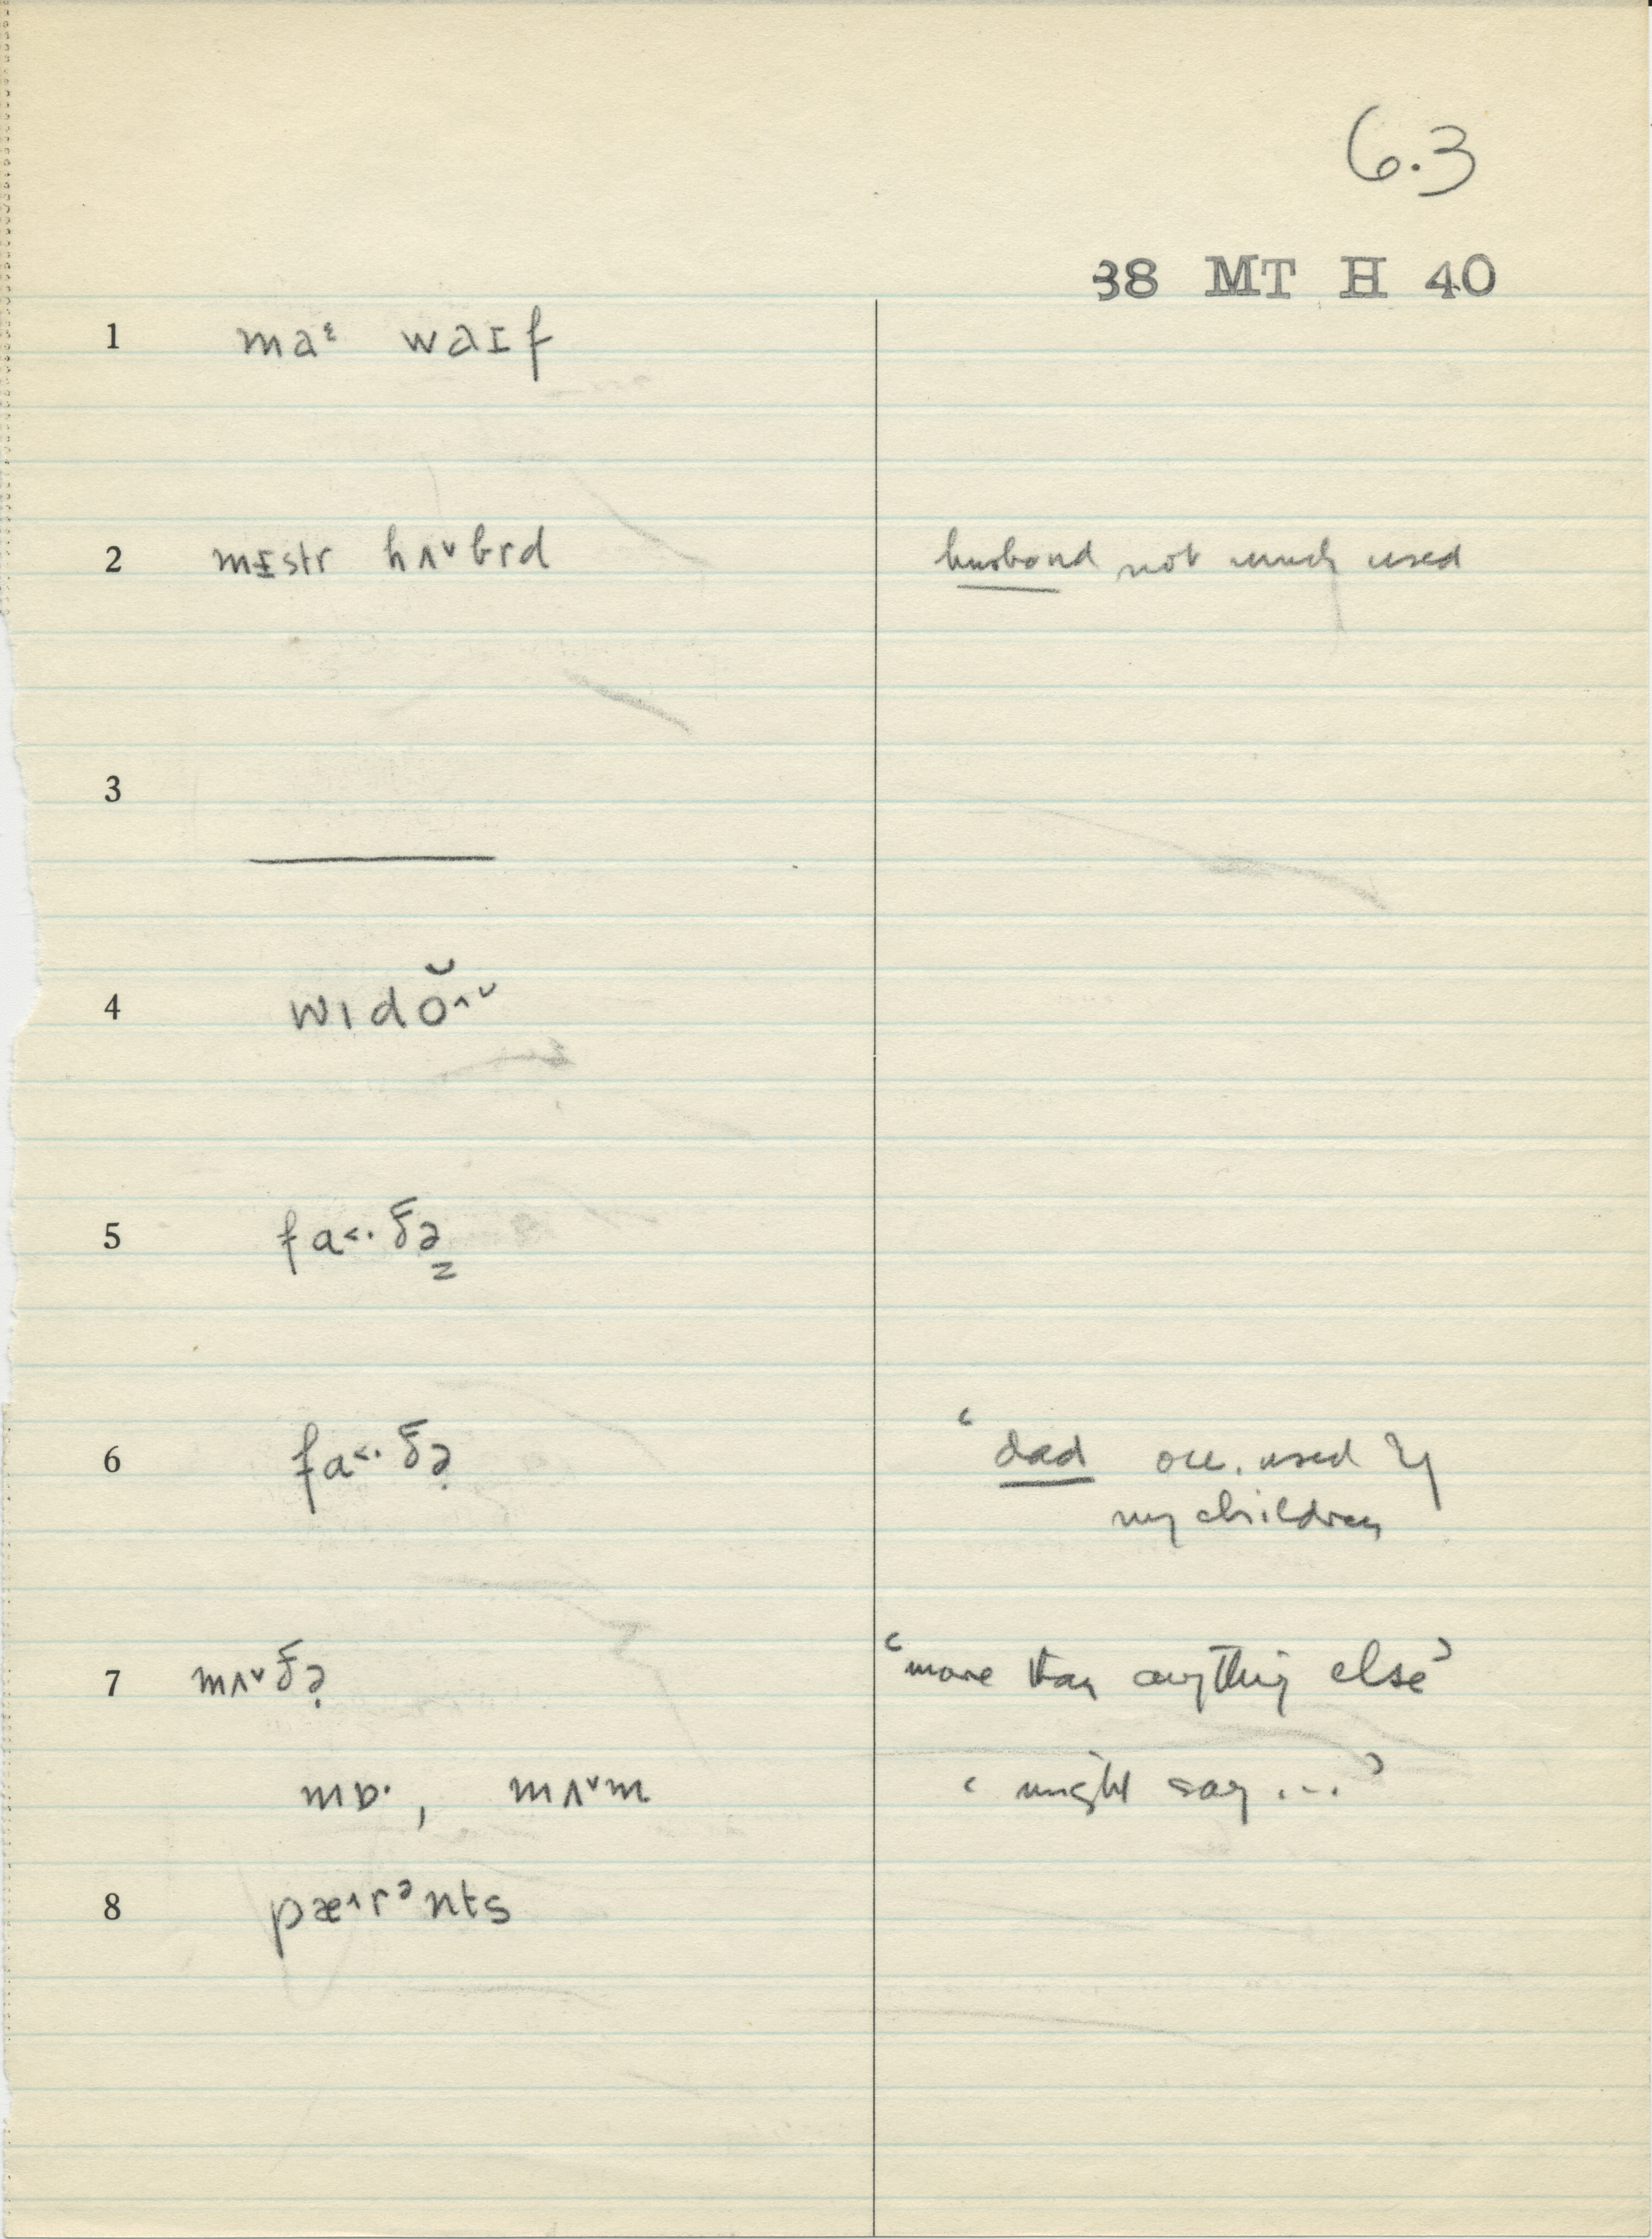 6.3
38 MT H 40
1 maᵋ waɪf
2 mɪstr hʌ˅brd husband not much used
3
4 wɪdŏ˄˅
5 fa˂·ðə̳
6 fa˂·ðə̣ ‘dad occ. used by
my children
7 mʌ˅ðə̣ ‘more than anything else’
mɒ·, mʌ˅m ‘might say ...’
8 pæ˄rᵊnts